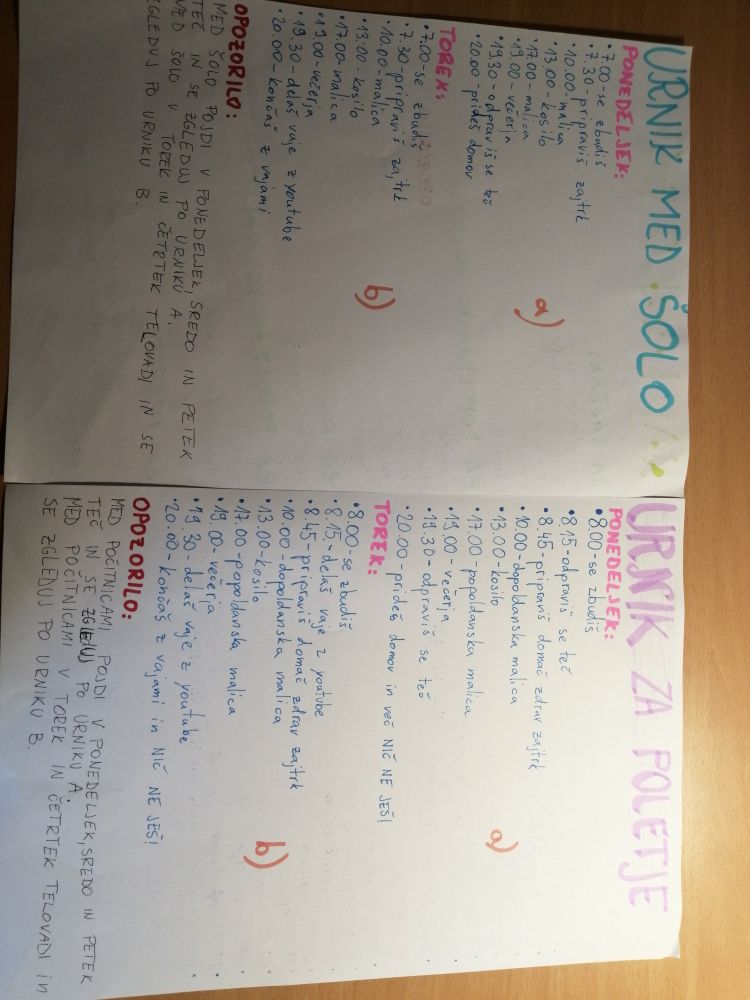 URNIK MED ŠOLO
PONEDELJEK:
• 7.00-se zbudiš
• 7.30-pripraviš zajtrk
• 10.00-malica
• 13.00-kosilo
• 17.00-malica
• 19.00-večerja
• 19.30-odpraviš se teč
• 20.00-prideš domov
a)
TOREK:
• 7.00-se zbudiš
• 7.30-pripraviš zajtrk
• 10.00-malica
• 13.00-kosilo
• 17.00-malica
• 19.00-večerja
• 19.30-delaš vaje z youtube
• 20.00-končaš z vajami
b)
OPOZORILO:
MED ŠOLO POJDI V PONEDELJEK, SREDO IN PETEK
TEČ IN SE ZGLEDUJ PO URNIKU A.
MED ŠOLO V TOREK IN ČETRTEK TELOVADI IN SE
ZGLEDUJ PO URNIKU B.
URNIK ZA POLETJE
PONEDELJEK:
• 8.00-se zbudiš
• 8.15-odpraviš se teč
• 8.45-pripraviš domač zdrav zajtrk
• 10.00-dopoldanska malica
• 13.00-kosilo
• 17.00-popoldanska malica
• 19.00-večerja
• 19.30-odpraviš se teč
• 20.00-prideš domov in več NIČ NE JEŠ!
a)
TOREK:
• 8.00-se zbudiš
• 8.15-delaš vaje z youtube
• 8.45-pripraviš domač zdrav zajtrk
• 10.00-dopoldanska malica
• 13.00-kosilo
• 17.00-popoldanska malica
• 19.00-večerja
• 19.30-delaš vaje z youtube
• 20.00-končaš z vajami in NIČ NE JEŠ!
b)
OPOZORILO:
MED POČITNICAMI POJDI V PONEDELJEK, SREDO IN PETEK
TEČ IN SE ZGLEDUJ PO URNIKU A.
MED POČITNICAMI V TOREK IN ČETRTEK TELOVADI in
SE ZGLEDUJ PO URNIKU B.